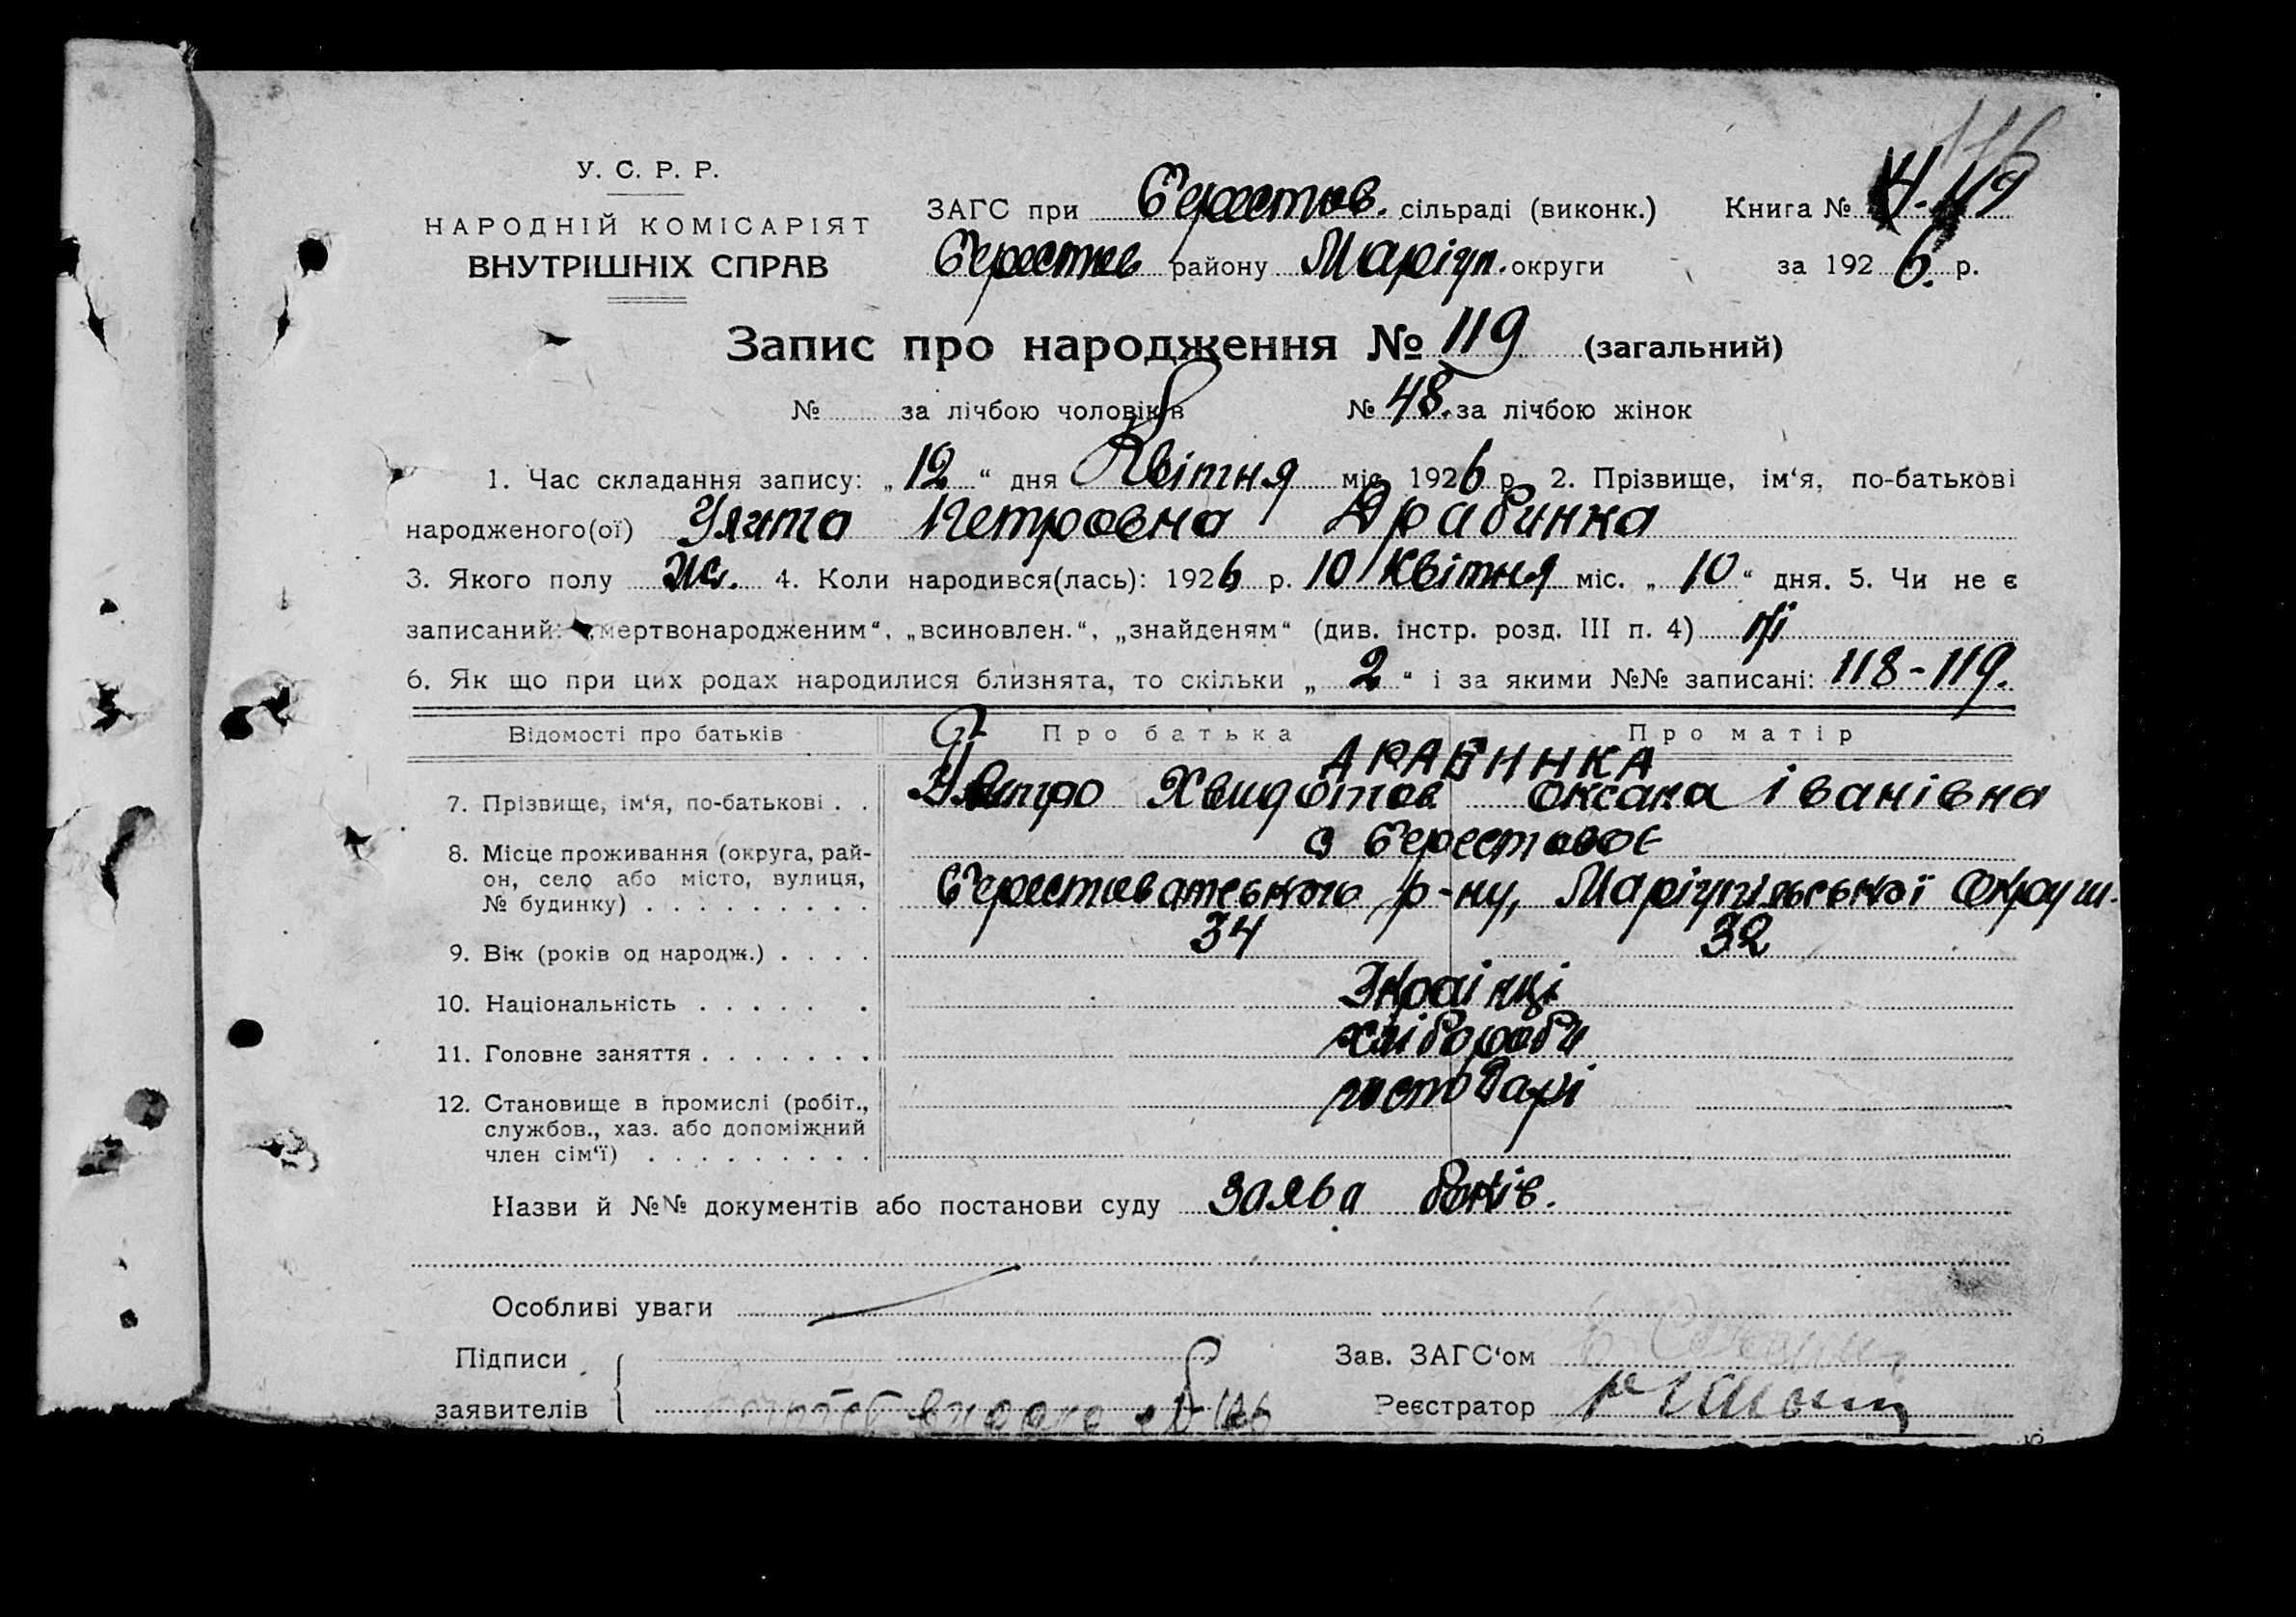 У. С. Р. Р.
НАРОДНІЙ КОМІСАРІЯТ
ВНУТРІШНІХ СПРАВ
ЗАГС при Берестов. сільраді (виконк.) Книга №
Берестов району Маріуп. округи за 1926. р.
Запис про народження № 119 (загальний)
№ за лічбою чоловіків № 48. за лічбою жінок
1. Час складання запису: „12“ дня Квітня міс. 1926 р. 2. Прізвище, ім‘я, по-батькові
народженого(ої) Улита Петровна Драбинка
3. Якого полу ж. 4. Коли народився(лась): 1926 р. 10 Квітня міс. „10“ дня. 5. Чи не є
записаний: „мертвонародженим“, „всиновлен.“, „знайденям“ (див. інстр. розд. III п. 4) ні
6. Як що при цих родах народилися близнята, то скільки „2“ і за якими №№ записані: 118-119.
Відомості про батьків Про батька Про матір
ДРАБИНКА
7. Прізвище, ім‘я, по-батькові . . Хвидотов Оксана Іванівна
с Берестовоє
8. Місце проживання (округа, рай-
он, село або місто, вулиця,
№ будинку) . . . . . . . . . Берестоватського р-ну, Маріупільської Округи.
9. Вік (років од народж.) . . . . 34 32
10. Національність . . . . . . Українці
11. Головне заняття . . . . . . . хлібороби
12. Становище в промислі (робіт., господарі
службов., хаз. або допоміжний
член сім‘ї) . . . . . . . . .
Назви й №№ документів або постанови суду заява батьків.
Особливі уваги
Підписи Зав. ЗАГС‘ом
заявителів Реєстратор